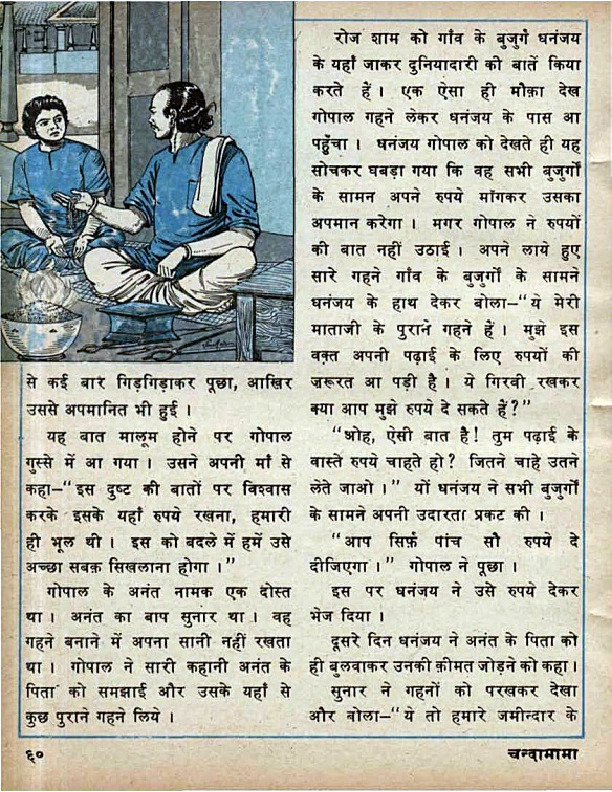 से कई बार गिड़गिड़ाकर पूछा, आखिर
उससे अपमानित भी हुई ।
यह बात मालूम होने पर गोपाल
गुस्से में आ गया । उसने अपनी माँ से
कहा–“इस दुष्ट की बातों पर विश्वास
करके इसके यहाँ रुपये रखना, हमारी
ही भूल थी । इस को बदले में हमें उसे
अच्छा सबक़ सिखलाना होगा ।”
गोपाल के अनंत नामक एक दोस्त
था । अनंत का बाप सुनार था । वह
गहने बनाने में अपना सानी नहीं रखता
था । गोपाल ने सारी कहानी अनंत के
पिता को समझाई और उसके यहाँ से
कुछ पुराने गहने लिये ।
रोज शाम को गाँव के बुजुर्ग धनंजय
के यहाँ जाकर दुनियादारी की बातें किया
करते हैं । एक ऐसा ही मौक़ा देख
गोपाल गहने लेकर धनंजय के पास आ
पहुँचा । धनंजय गोपाल को देखते ही यह
सोचकर घबड़ा गया कि वह सभी बुजुर्गों
के सामन अपने रुपये माँगकर उसका
अपमान करेगा । मगर गोपाल ने रुपयों
की बात नहीं उठाई । अपने लाये हुए
सारे गहने गाँव के बुजुर्गों के सामने
धनंजय के हाथ देकर बोला–“ये मेरी
माताजी के पुराने गहने हैं । मुझे इस
वक़्त अपनी पढ़ाई के लिए रुपयों की
ज़रूरत आ पड़ी है । ये गिरवी रखकर
क्या आप मुझे रुपये दे सकते हैं ?”
“ओह, ऐसी बात है ! तुम पढ़ाई के
वास्ते रुपये चाहते हो ? जितने चाहे उतने
लेते जाओ ।” यों धनंजय ने सभी बुजुर्गों
के सामने अपनी उदारता प्रकट की ।
“आप सिर्फ़ पांच सौ रुपये दे
दीजिएगा ।” गोपाल ने पूछा ।
इस पर धनंजय ने उसे रुपये देकर
भेज दिया ।
दूसरे दिन धनंजय ने अनंत के पिता को
ही बुलवाकर उनकी क़ीमत जोड़ने को कहा ।
सुनार ने गहनों को परखकर देखा
और बोला–“ये तो हमारे जमीन्दार के
६०
चन्दामामा